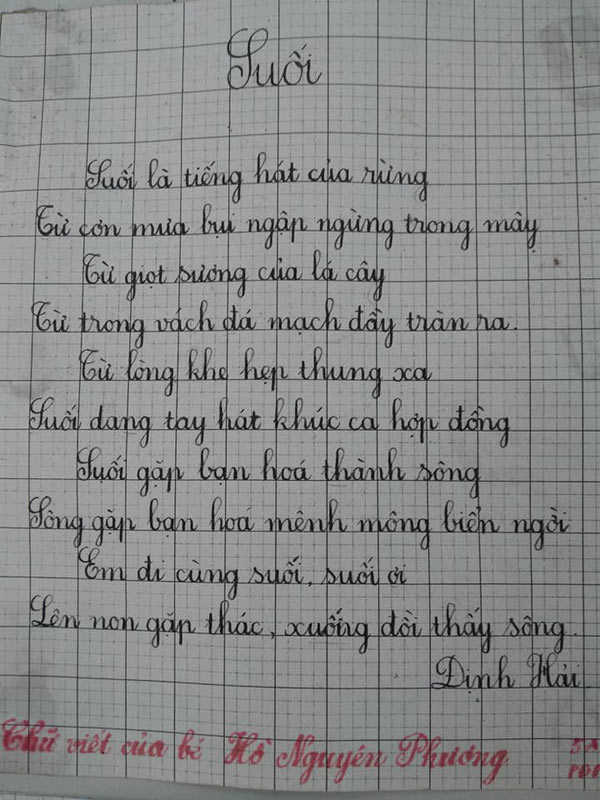 Suối
Suối là tiếng hát của rừng
Từ cơn mưa bụi ngập ngừng trong mây
Từ giọt sương của lá cây
Từ trong vách đá mạch đầy tràn ra.
Từ lòng khe hẹp thung xa
Suối dang tay hát khúc ca hợp đồng
Suối gặp bạn hoá thành sông
Sông gặp bạn hoá mênh mông biển ngời
Em đi cùng suối, suối ơi
Lên non gặp thác, xuống đồi thấy sông.
Định Hải
Chữ viết của bé Hồ Nguyên Phương